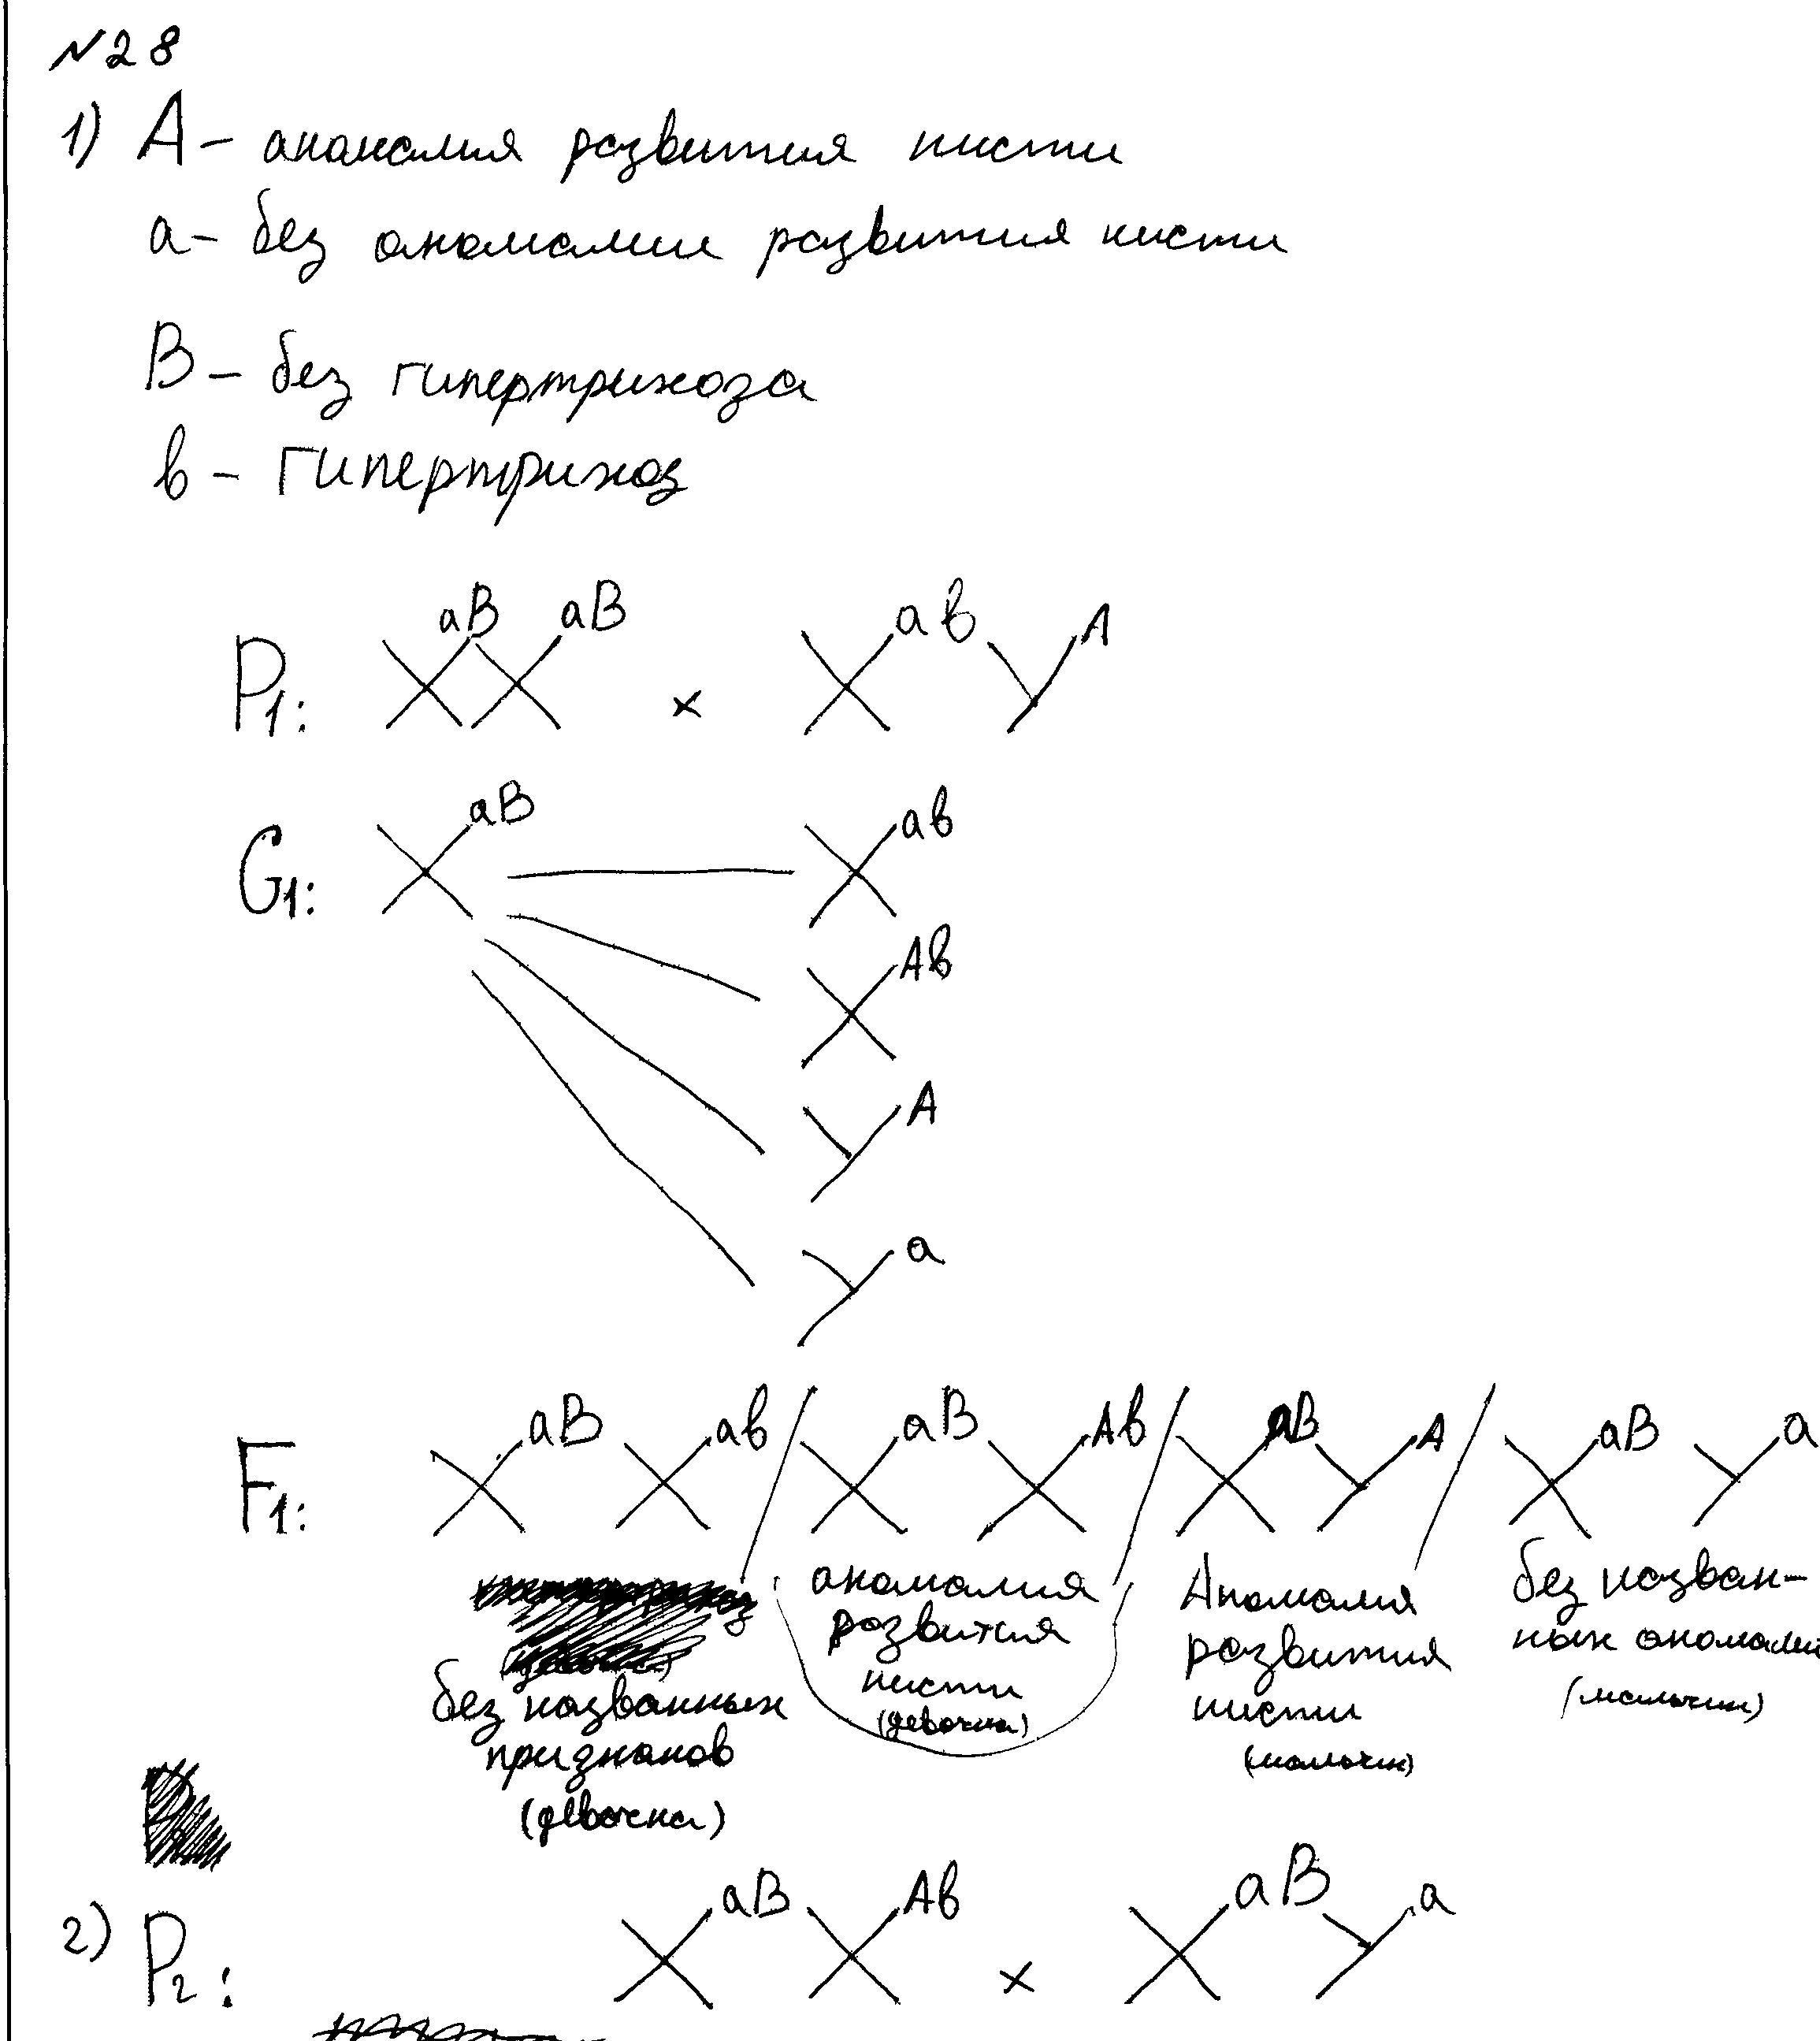 №28
1) А - аномалия развития кисти
а - без аномалии развития кисти
В - без гипертрихоза
в - гипертрихоз
P1: X^aB X^aB × X^aв Y^A
G1: X^aB X^aв
X^Aв
Y^A
Y^a
F1: X^aB X^aв / X^aB X^Aв / X^aB Y^A / X^aB Y^a
без названных признаков (девочка)
аномалия развития кисти (девочка)
Аномалия развития кисти (мальчик)
без назван-ных аномалий (мальчик)
2) P2: X^aB X^Aв × X^aB Y^a